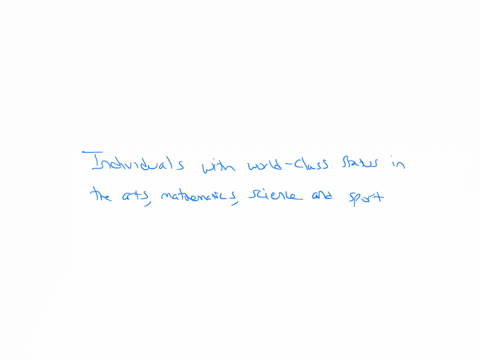 Individuals with world-class status in
the arts, mathematics, science and sport